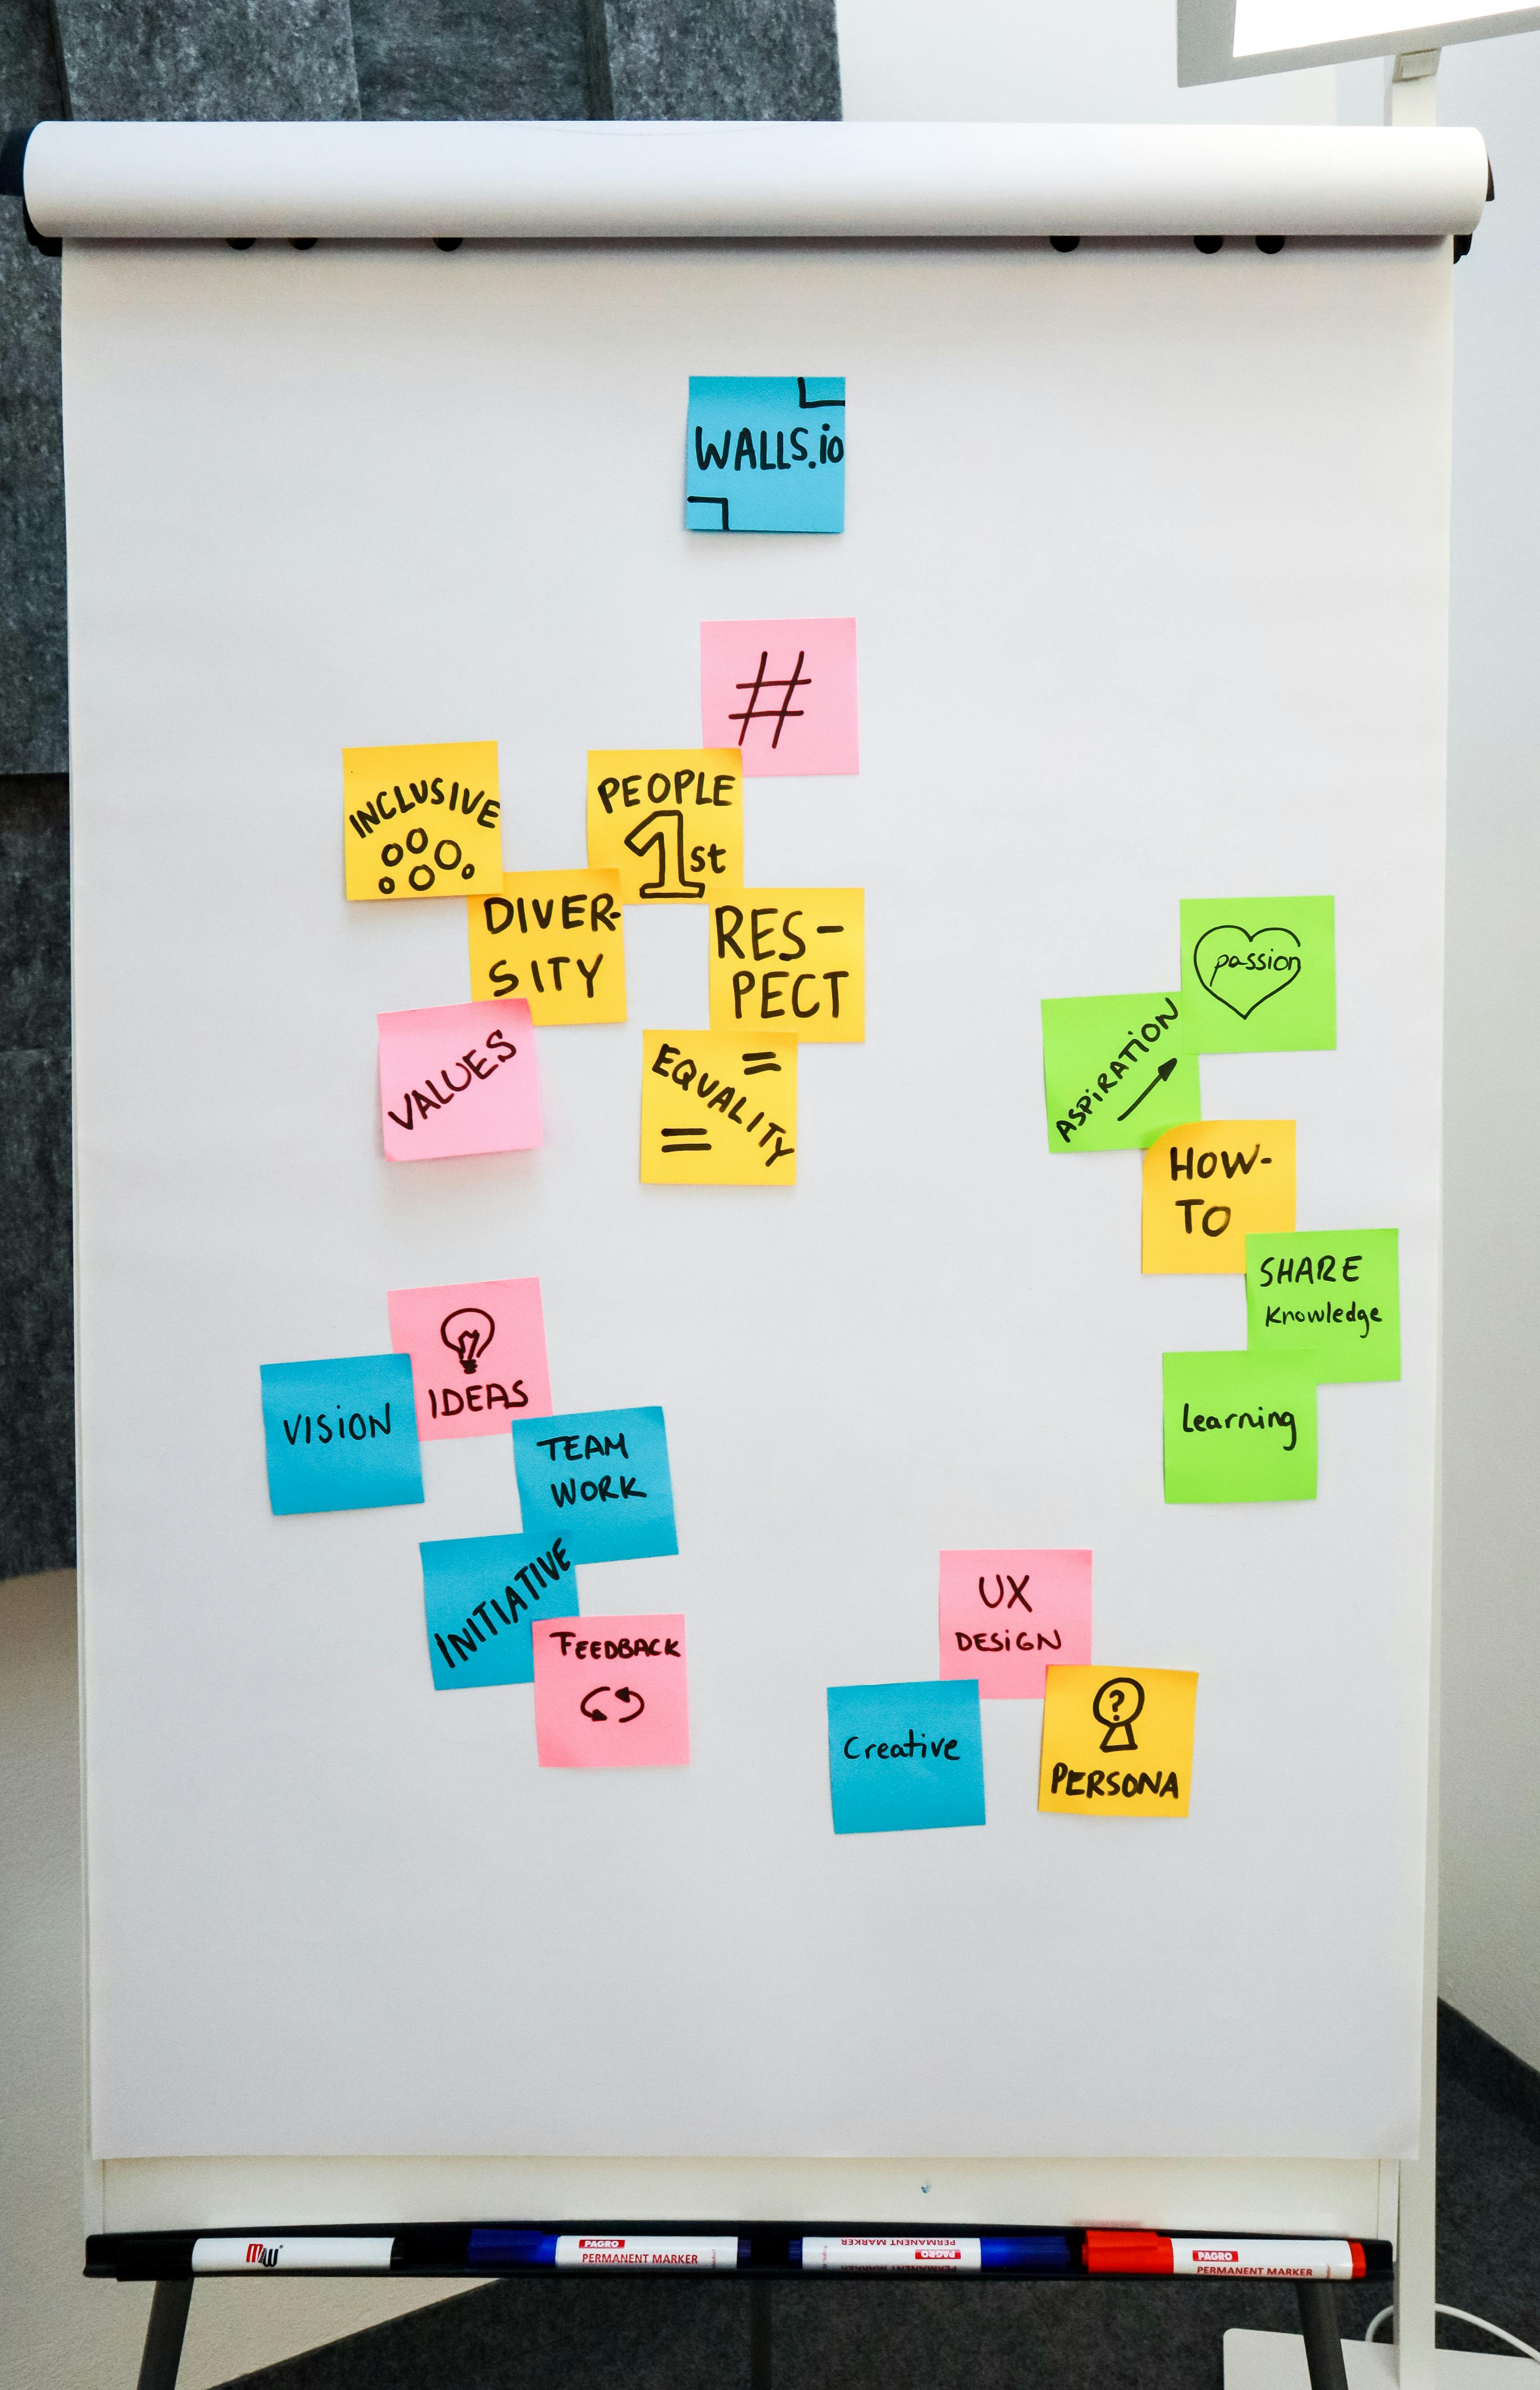 WALLS.io
#
INCLUSIVE
PEOPLE
1st
DIVER-
SITY
RES-
PECT
VALUES
= EQUALITY =
passion
ASPIRATION
HOW-
TO
SHARE
Knowledge
Learning
IDEAS
VISION
TEAM
WORK
INITIATIVE
FEEDBACK
UX
DESIGN
Creative
?
PERSONA
M&W
PAGRO
PERMANENT MARKER
PAGRO
PERMANENT MARKER
PAGRO
PERMANENT MARKER